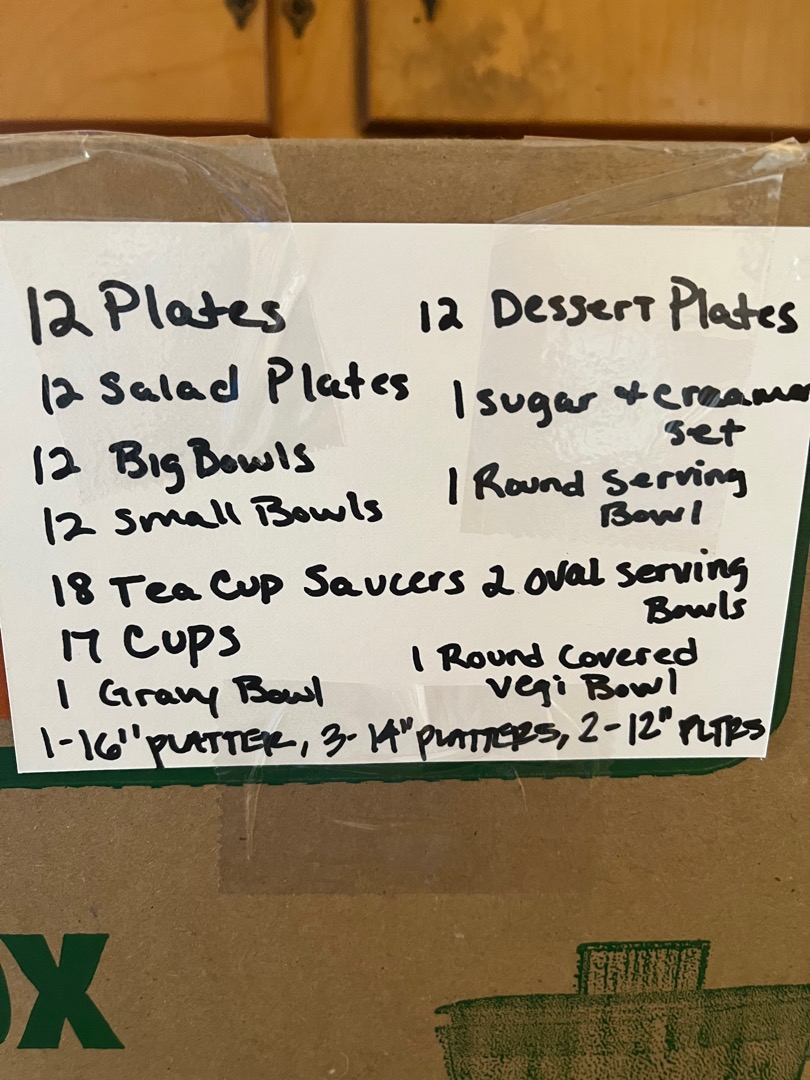 12 Plates
12 Salad Plates
12 Big Bowls
12 Small Bowls
18 Tea Cup Saucers
17 Cups
1 Gravy Bowl
12 Dessert Plates
1 sugar + creamer
set
1 Round Serving
Bowl
2 oval serving
Bowls
1 Round Covered
vegi Bowl
1-16" PLATTER, 3-14" PLATTERS, 2-12" PLTRS
OX